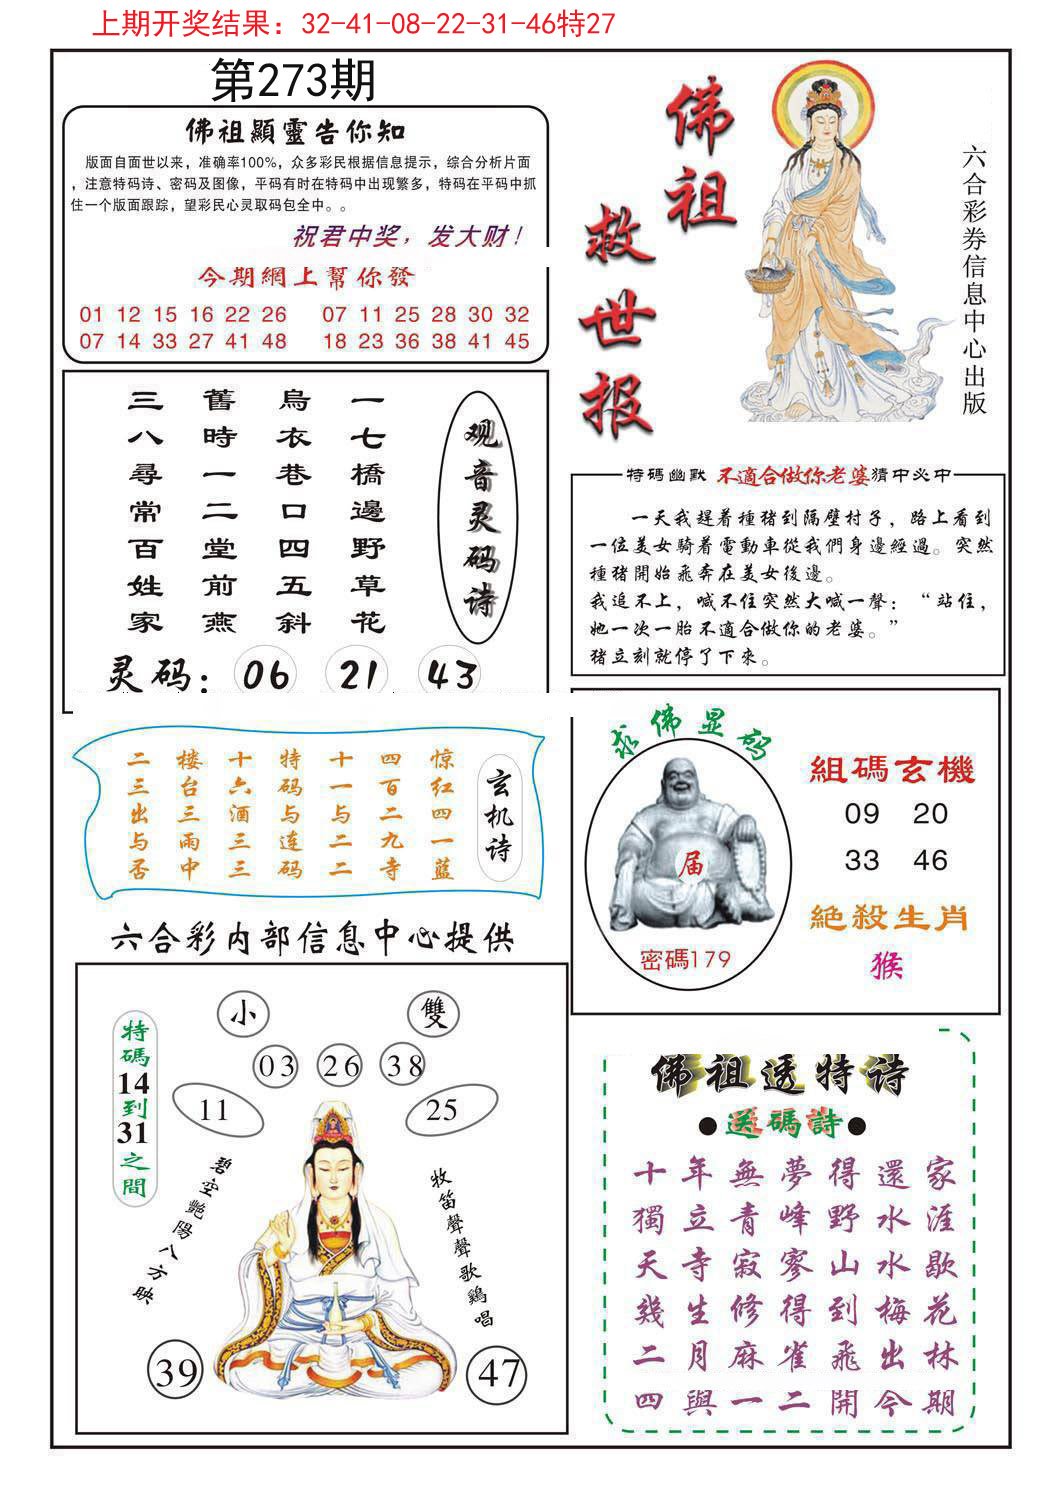 上期开奖结果：32-41-08-22-31-46特27
第273期
佛祖顯靈告你知
版面自面世以来，准确率100%，众多彩民根据信息提示，综合分析片面
，注意特码诗、密码及图像，平码有时在特码中出现繁多，特码在平码中抓
住一个版面跟踪，望彩民心灵取码包全中。。
祝君中奖，发大财！
今期網上幫你發
01 12 15 16 22 26 07 11 25 28 30 32
07 14 33 27 41 48 18 23 36 38 41 45
佛祖
救世报
六合彩券信息中心出版
观音灵码诗
一七橋邊野草花
烏衣巷口四五斜
舊時一二堂前燕
三八尋常百姓家
灵码：06 21 43
特碼幽默 不適合做你老婆 猜中必中
一天我趕着種猪到隔壁村子，路上看到
一位美女騎着電動車從我們身邊經過。突然
種猪開始飛奔在美女後邊。
我追不上，喊不住突然大喊一聲：“站住，
她一次一胎不適合做你的老婆。”
猪立刻就停了下來。
玄机诗
惊红四一蓝
四百二九寺
十一与二二
特码与连码
十六酒三三
楼台三雨中
二三出与否
求佛显码
届
密碼179
組碼玄機
09 20
33 46
絕殺生肖
猴
六合彩内部信息中心提供
特碼14到31之間
小 雙
03 26 38
11 25
碧空艷陽八方映
牧笛聲聲歌鷄唱
39 47
佛祖透特诗
●送碼詩●
十年無夢得還家
獨立青峰野水涯
天寺寂寥山水歇
幾生修得到梅花
二月麻雀飛出林
四與一二開今期